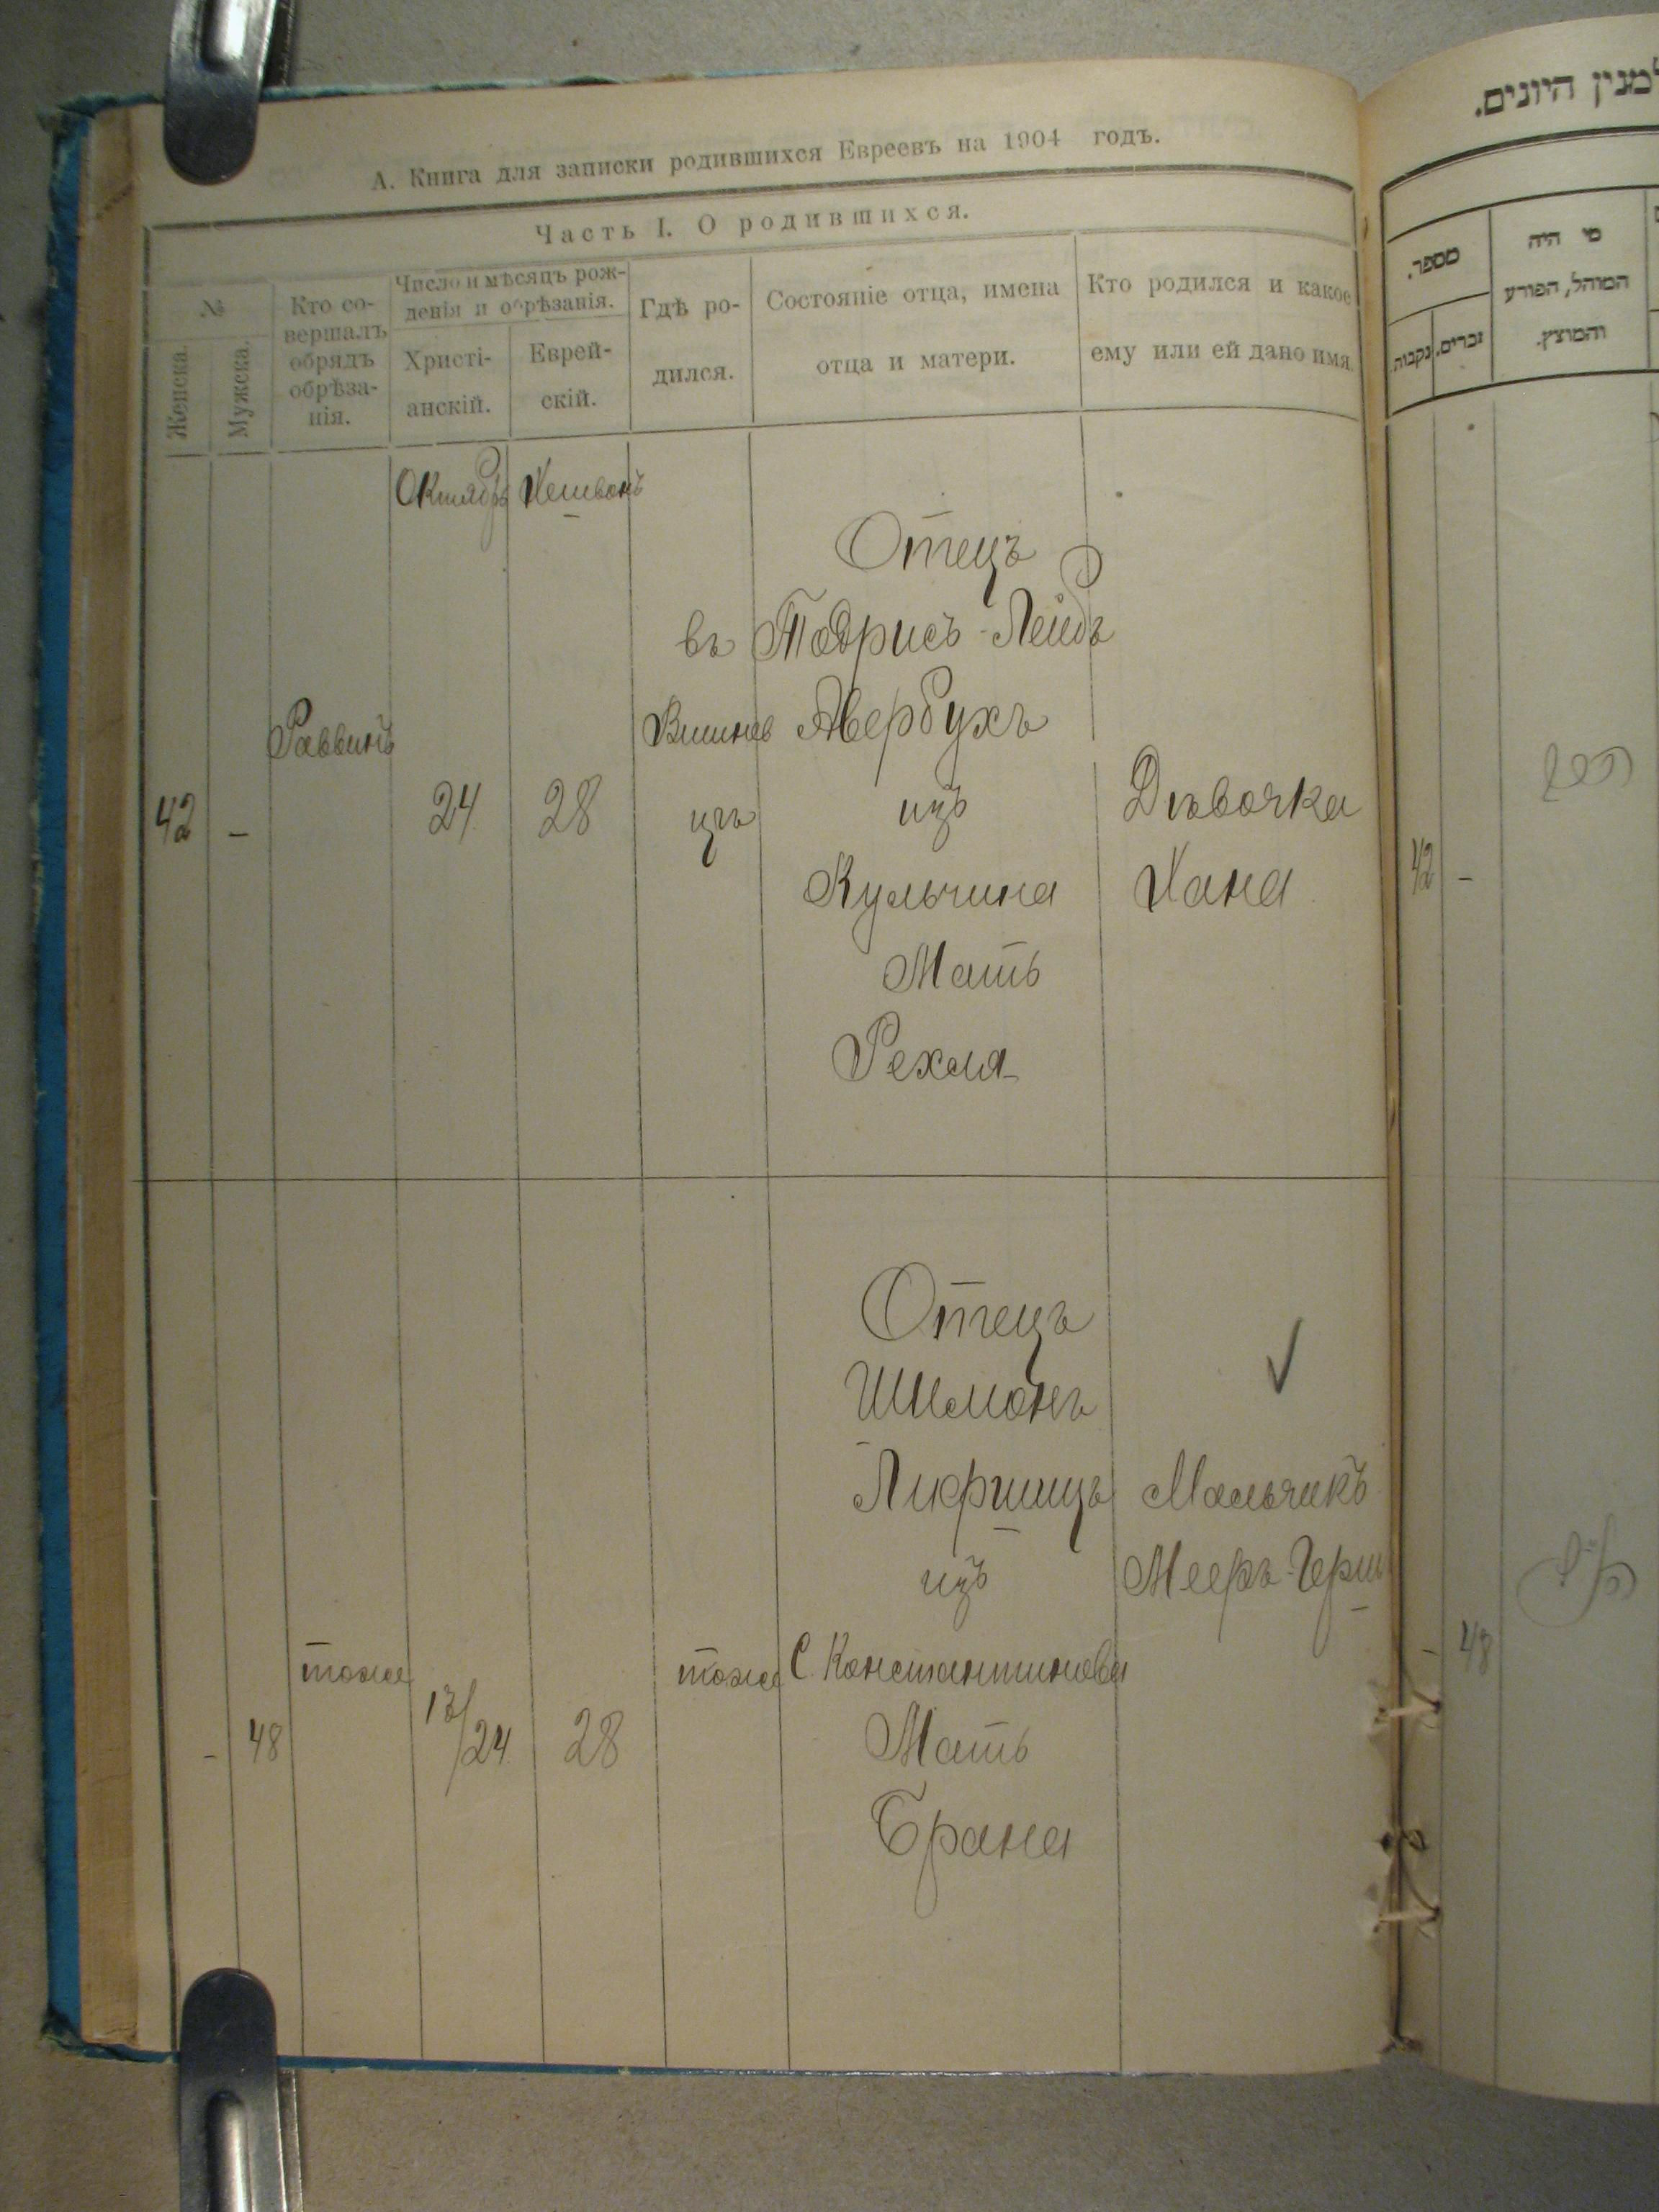 А. Книга для записки родившихся Евреевъ на 1904 годъ.
Часть I. О родившихся.
№
Женска.
Мужска.
Кто со-
вершалъ
обрядъ
обрѣза-
нія.
Число и мѣсяцъ рож-
денія и обрѣзанія.
Христі-
анскій.
Еврей-
скій.
Гдѣ ро-
дился.
Состояніе отца, имена
отца и матери.
Кто родился и какое
ему или ей дано имя.
Октябрь Хешвонъ
42
-
Раввинъ
24
28
въ
Вишнев
цѣ
Отецъ
Тодрисъ-Лейбъ
Авербухъ
изъ
Кульчина
Мать
Рехля
Дѣвочка
Хана
-
48
тоже
24
28
тоже
Отецъ
Шимонъ
Лифшицъ
изъ
С. Константинова
Мать
Брана
Мальчикъ
Мееръ-Герш
למנין היונים.
מספר.
נקבות
זכרים.
מי היה
המוהל, הפורע
והמוצץ.
42
-
-
48